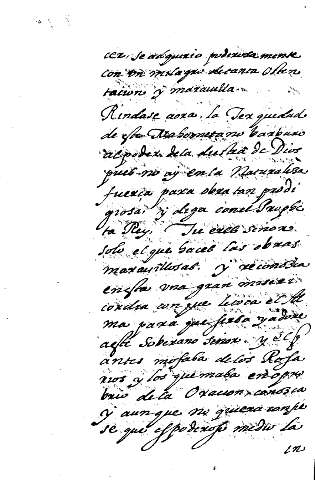 cer. se adquirio poderosa mente
con un milagro de tanta Osten
tacion y marauilla.
Rindase aora, la Terquedad
de este Mahometano barbaro
al poder de la diestra de Dios
pues no ay en la Naturaleza
fuerza para obra tan prodi
giosa y diga con el Prophe
ta Rey. Tu eres Señor
solo el que haces las obras
marauillosas. y reconosca
en esta una gran miseri
cordia con que le toca el Al
ma para que sierba y adore
a este Soberano Señor. y si
antes mofaba de los Rosa
rios y los quemaba en opro
brio de la Oracion conosca
y aunque no quiera confie
se que es poderoso medio la
in